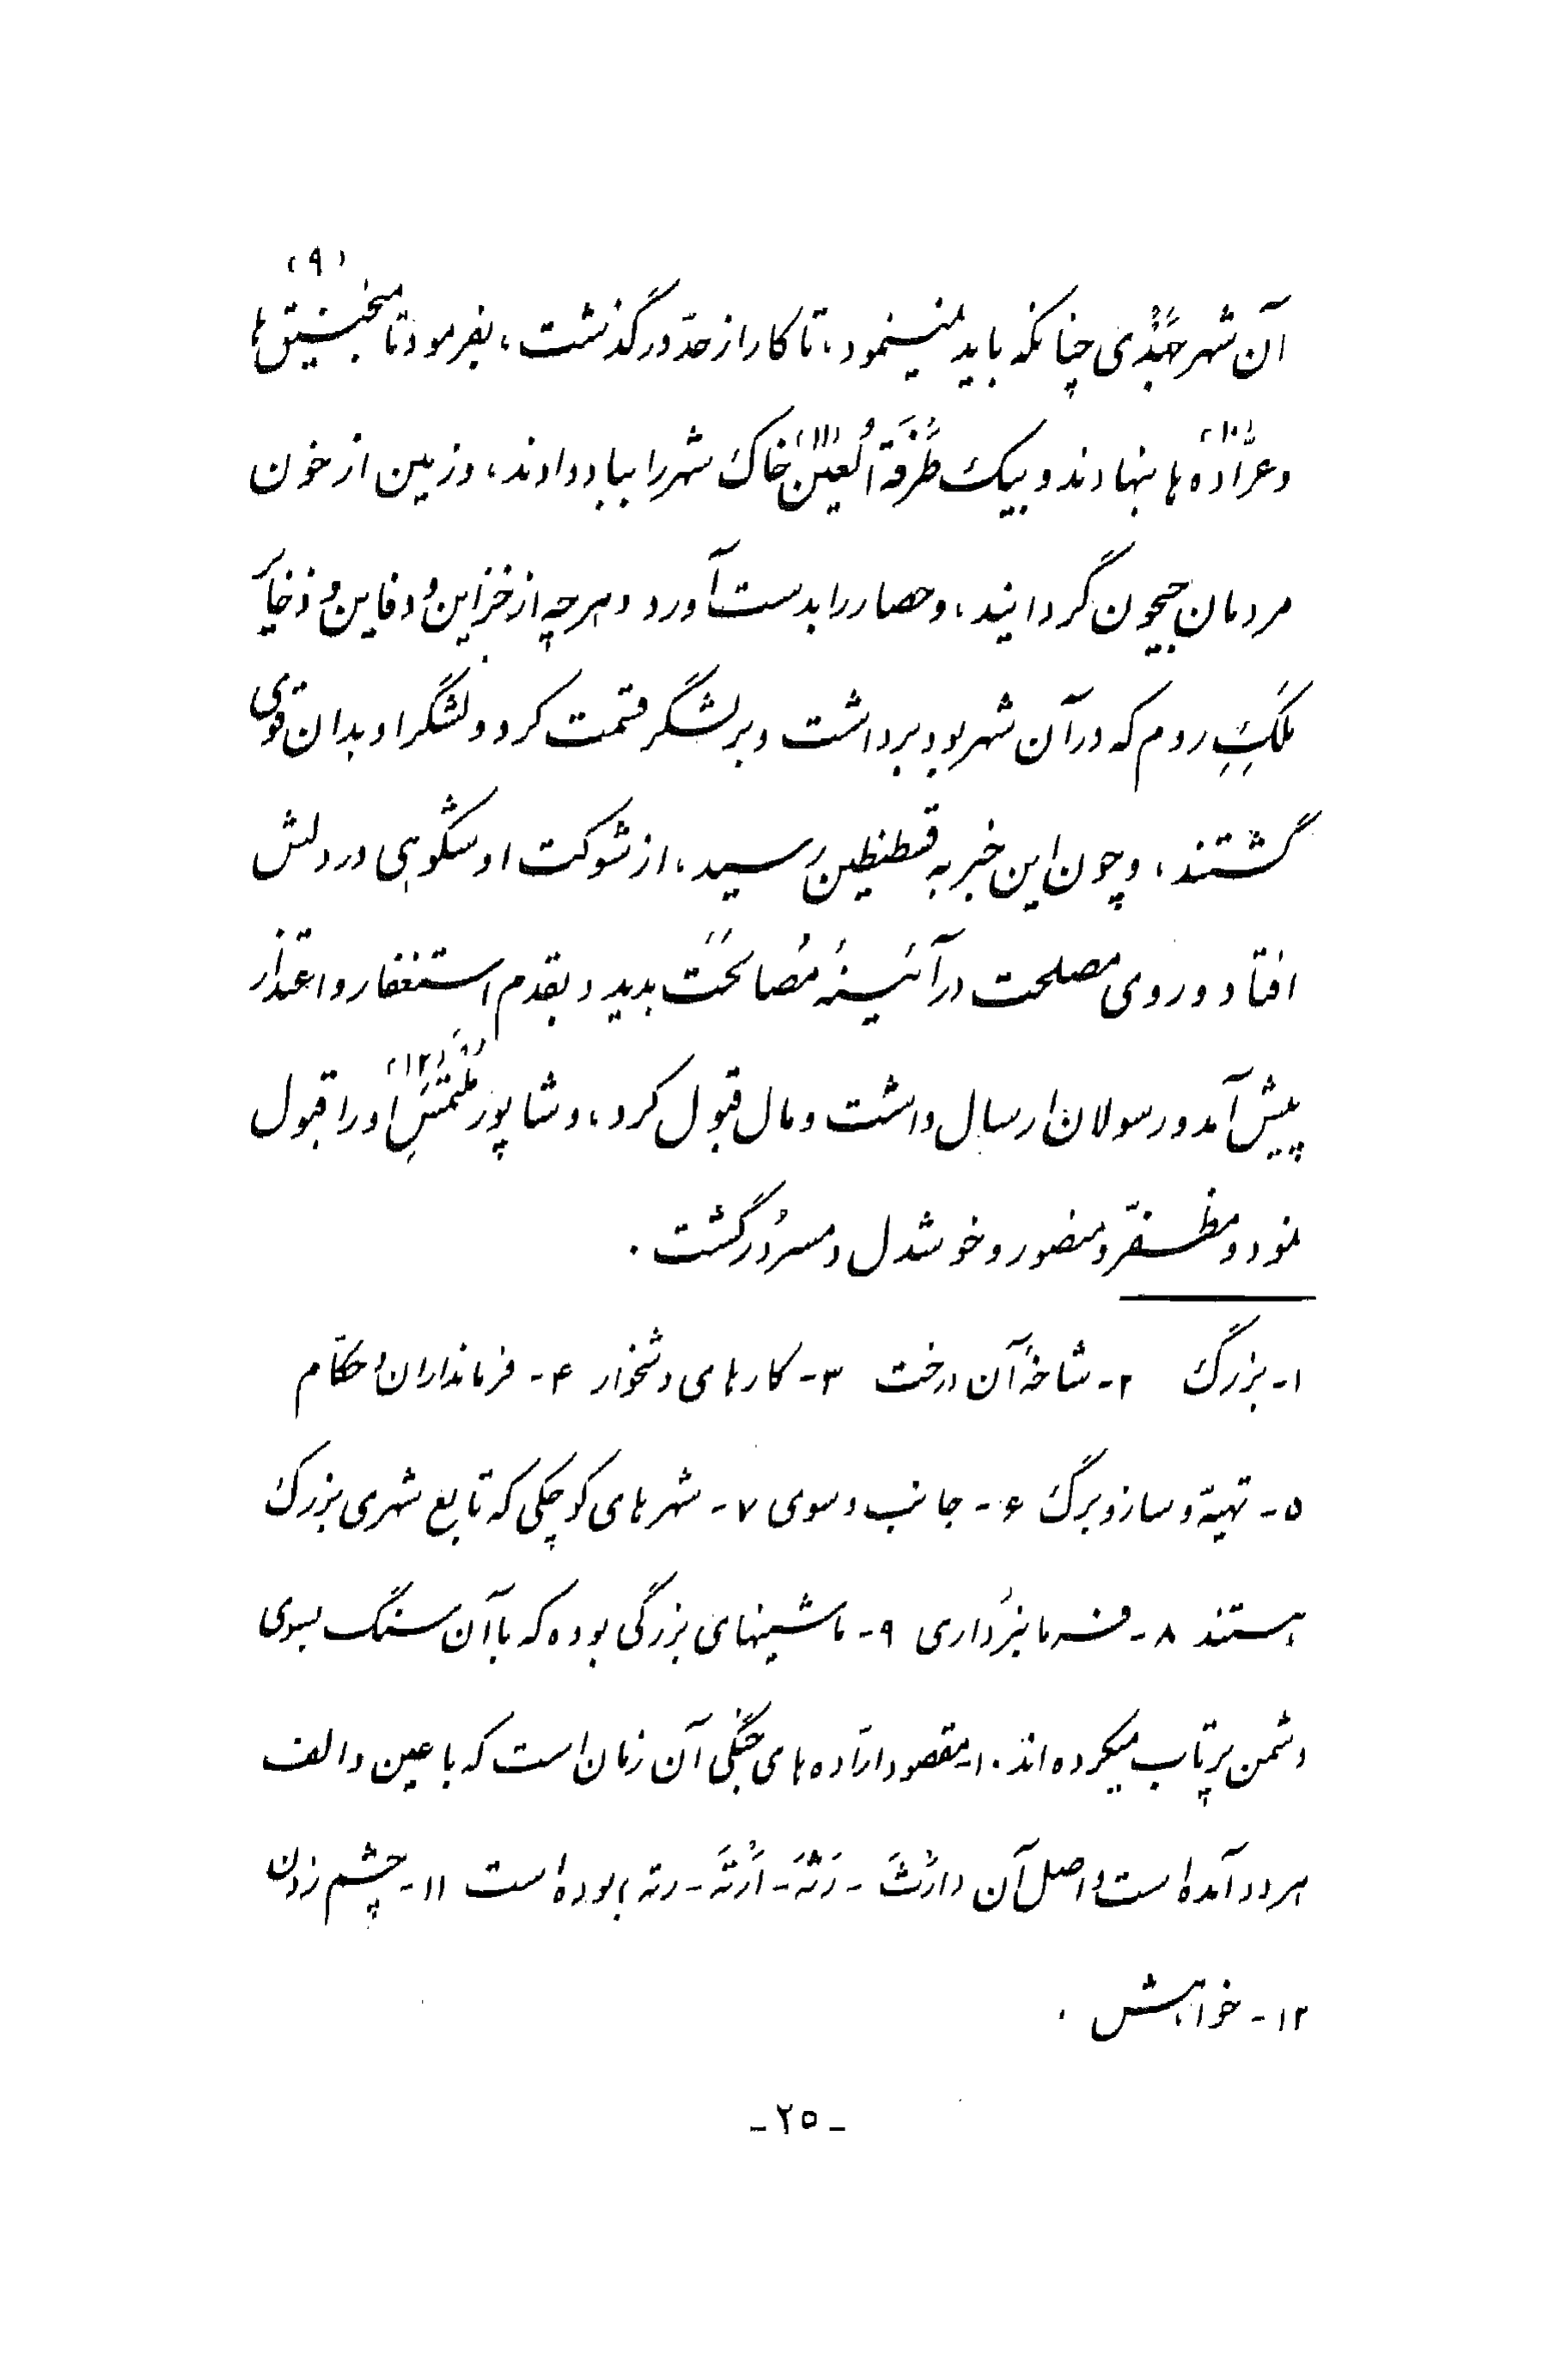 آن شهر جِدّی چنانکه باید نمینمود، تا کار از حدّ درگذشت، بفرمود تا منجنیق‌ها (۹)
و عرّاده‌ها (۱۰) بنهادند و بیک طُرفَةُ العَین (۱۱) خاک شهر را بباد دادند، و زمین از خون
مردمان جیحون گردانید، و حصار را بدست آورد و هرچه از خزاین و دفاین و ذخایَر
مَلِکِ روم که در آن شهر بود برداشت و بر لشگر قسمت کرد و لشگر او بدان قوی
گشتند، و چون این خبر به قسطنطین رسید، از شوکت او شکوهی در دلش
افتاد و روی مصلحت در آئینهٔ مُصالَحَت بدید و بقدم استغفار و اعتذار
پیش آمد و رسولان ارسال داشت و مال قبول کرد، و شاپور مُلتَمَسِ (۱۲) او را قبول
نمود و مظفّر و منصور و خوشدل و مسرُور گشت.
۱- بزرگ ۲- شاخهٔ آن درخت ۳- کارهای دشخوار ۴- فرمانداران و حکّام
۵- تهیّه و ساز و برگ ۶- جانب و سوی ۷- شهرهای کوچکی که تابع شهری بزرگ
هستند ۸- فرمانبَرداری ۹- ماشینهای بزرگی بوده که با آن سنگ بسوی
دشمن پرتاب میکرده‌اند. ۱۰- مقصود ارّاده‌های جنگی آن زمان است که با عین و الف
هر دو آمده است و اصل آن (اَرثَ - رَثَه - اَرْتَه - رته) بوده است ۱۱- چشم زدن
۱۲- خواهش.
- ۲۵ -